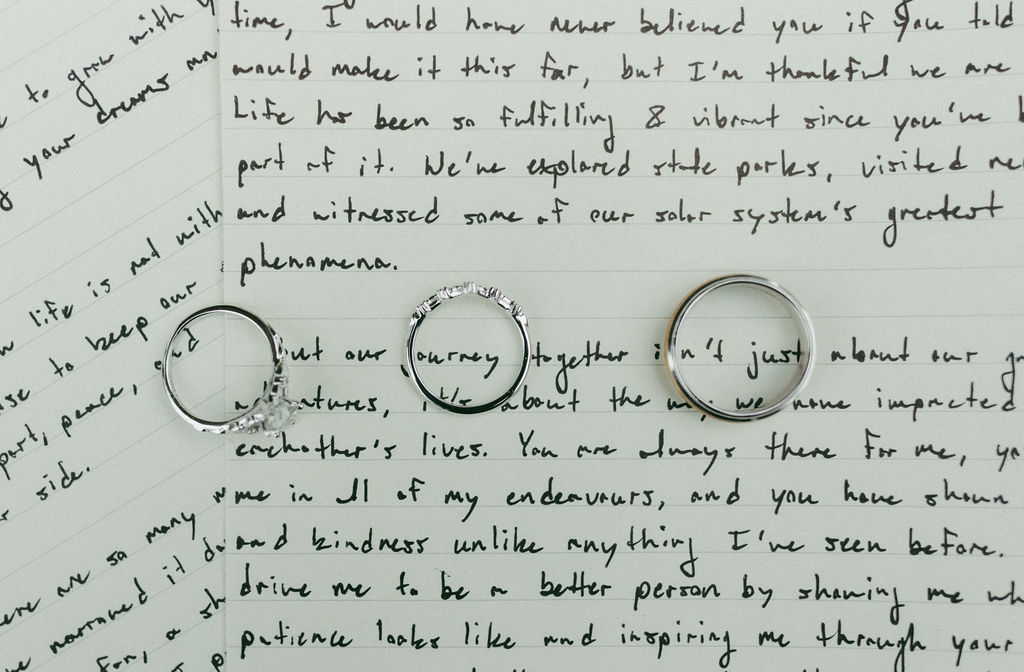 to grow with
your dreams
life is not with
to keep our
part, peace, and
side.
ere are so many
narrowed it do
for, a sh
time, I would have never believed you if you told
would make it this far, but I'm thankful we are
Life has been so fulfilling & vibrant since you've
part of it. We've explored state parks, visited
and witnessed some of our solar system's greatest
phenomena.
but our journey together isn't just about our
adventures, it's about the way we have impacted
eachother's lives. You are always there for me,
me in all of my endeavours, and you have shown
and kindness unlike anything I've seen before.
drive me to be a better person by showing me wh
patience looks like and inspiring me through your